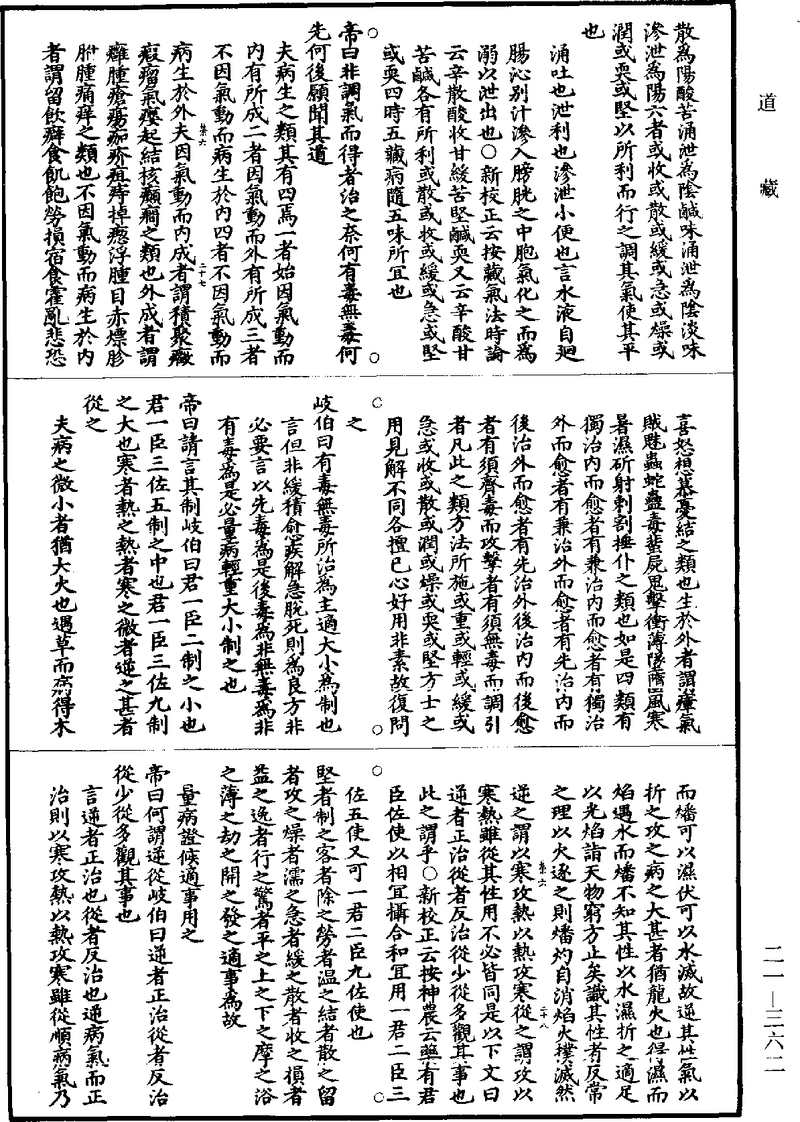 道藏
散為陽酸苦涌泄為陰鹹味涌泄為陰淡味
滲泄為陽六者或收或散或緩或急或燥或
潤或耎或堅以所利而行之調其氣使其平
也
涌吐也泄利也滲泄小便也言水液自廻
腸沁別汁滲入膀胱之中胞氣化之而為
溺以泄出也○新校正云按藏氣法時論
云辛散酸收甘緩苦堅鹹耎又云辛酸甘
苦鹹各有所利或散或收或緩或急或堅
或耎四時五藏病隨五味所宜也
帝曰非調氣而得者治之奈何有毒無毒何
先何後願聞其道
夫病生之類其有四焉一者始因氣動而
內有所成二者因氣動而外有所成三者
不因氣動而病生於內四者不因氣動而
棊六 二十七
病生於外夫因氣動而內成者謂積聚癥
瘕瘤氣癭起結核癲癇之類也外成者謂
癰腫瘡瘍痂疥疽痔掉瘛浮腫目赤熛胗
胕腫痛痒之類也不因氣動而病生於內
者謂留飲癖食飢飽勞損宿食霍亂悲恐
喜怒想慕憂結之類也生於外者謂瘴氣
賊魅蟲蛇蠱毒蜚屍鬼擊衝薄墜墮風寒
暑濕斫射刺割捶仆之類也如是四類有
獨治內而愈者有兼治內而愈者有獨治
外而愈者有兼治外而愈者有先治內而
後治外而愈者有先治外後治內而後愈
者有須齊毒而攻擊者有須無毒而調引
者凡此之類方法所施或重或輕或緩或
急或收或散或潤或燥或耎或堅方士之
用見解不同各擅已心好用非素故復問
之
岐伯曰有毒無毒所治為主適大小為制也
言但非緩積愈疾解急脫死則為良方非
必要言以先毒為是後毒為非無毒為非
有毒為是必量病輕重大小制之也
帝曰請言其制岐伯曰君一臣二制之小也
君一臣三佐五制之中也君一臣三佐九制
之大也寒者熱之熱者寒之微者逆之甚者
從之
夫病之微小者猶大火也遇草而焫得木
而燔可以濕伏可以水滅故逆其性氣以
折之攻之病之大甚者猶龍火也得濕而
焰遇水而燔不知其性以水濕折之適足
以光焰詣天物窮方止矣識其性者反常
之理以火逐之則燔灼自消焰火撲滅然
棊六 二十八
逆之謂以寒攻熱以熱攻寒從之謂攻以
寒熱雖從其性用不必皆同是以下文曰
逆者正治從者反治從少從多觀其事也
此之謂乎○新校正云按神農云藥有君
臣佐使以相宜攝合和宜用一君二臣三
佐五使又可一君二臣九佐使也
堅者制之客者除之勞者溫之結者散之留
者攻之燥者濡之急者緩之散者收之損者
益之逸者行之驚者平之上之下之摩之浴
之薄之劫之開之發之適事為故
量病證候適事用之
帝曰何謂逆從岐伯曰逆者正治從者反治
從少從多觀其事也
言逆者正治也從者反治也逆病氣而正
治則以寒攻熱以熱攻寒雖從順病氣乃
二一—三六二